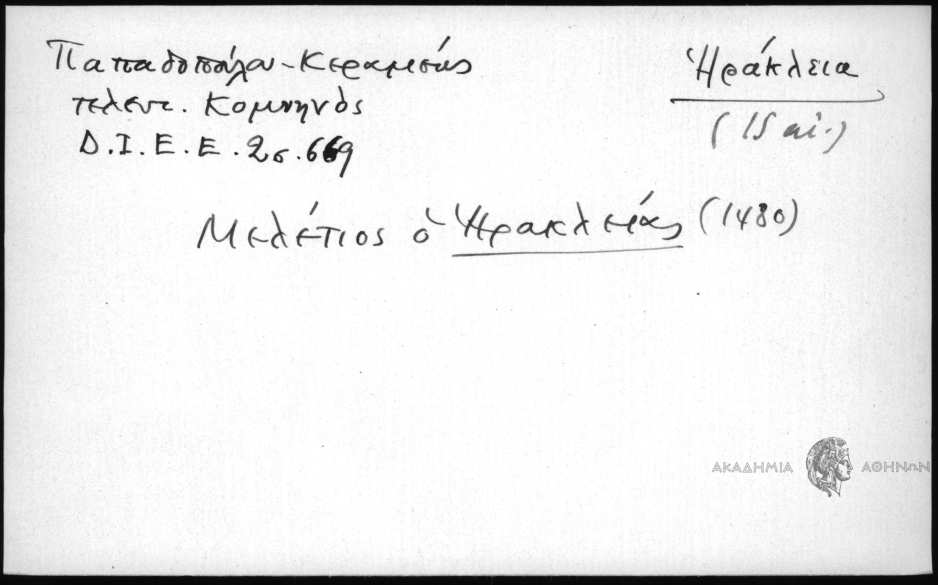 Παπαδοπούλου-Κεραμεύς
τελευτ. Κομνηνός
Δ.Ι.Ε.Ε. 2 σ. 669
Ἡράκλεια
(15 αἰ.)
Μελέτιος ὁ Ἡρακλείας (1480)
ΑΚΑΔΗΜΙΑ ΑΘΗΝΩΝ